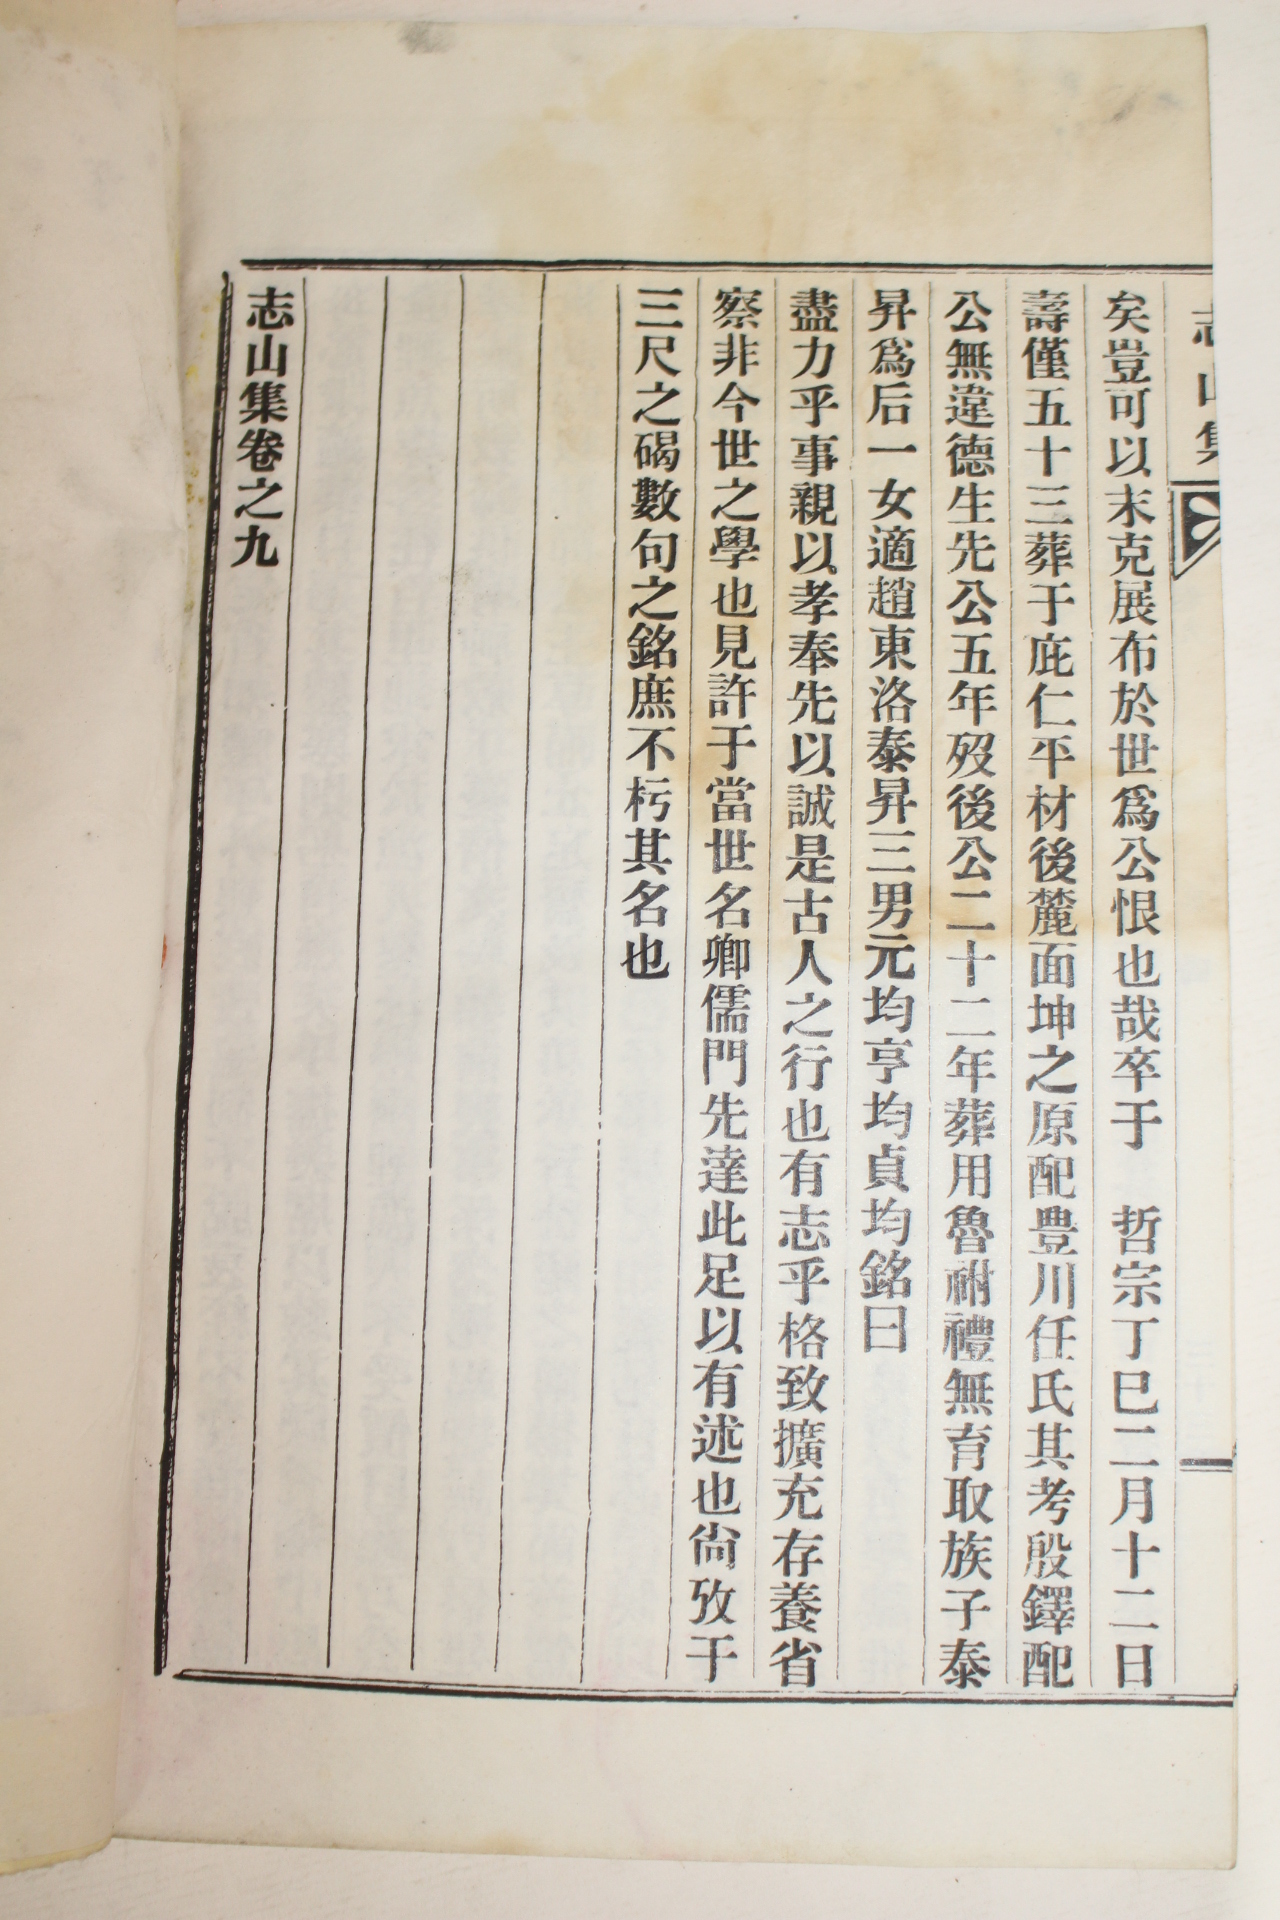 志山集
矣豈可以末克展布於世爲公恨也哉卒于　哲宗丁巳二月十二日
壽僅五十三葬于庇仁平材後麓面坤之原配豊川任氏其考殷鐸配
公無違德生先公五年歿後公二十二年葬用魯祔禮無育取族子泰
昇爲后一女適趙東洛泰昇三男元均亨均貞均銘曰
盡力乎事親以孝奉先以誠是古人之行也有志乎格致擴充存養省
察非今世之學也見許于當世名卿儒門先達此足以有述也尙攷于
三尺之碣數句之銘庶不杇其名也
志山集卷之九